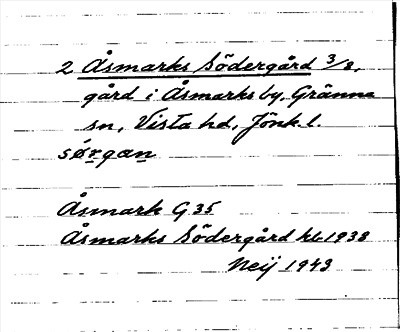 2 Åsmarks Södergård 3/8,
gård i Åsmarks by, Gränna
sn, Vista hd, Jönk. l.
sørgan
Åsmark G 35
Åsmarks Södergård kb 1938
Neij 1943